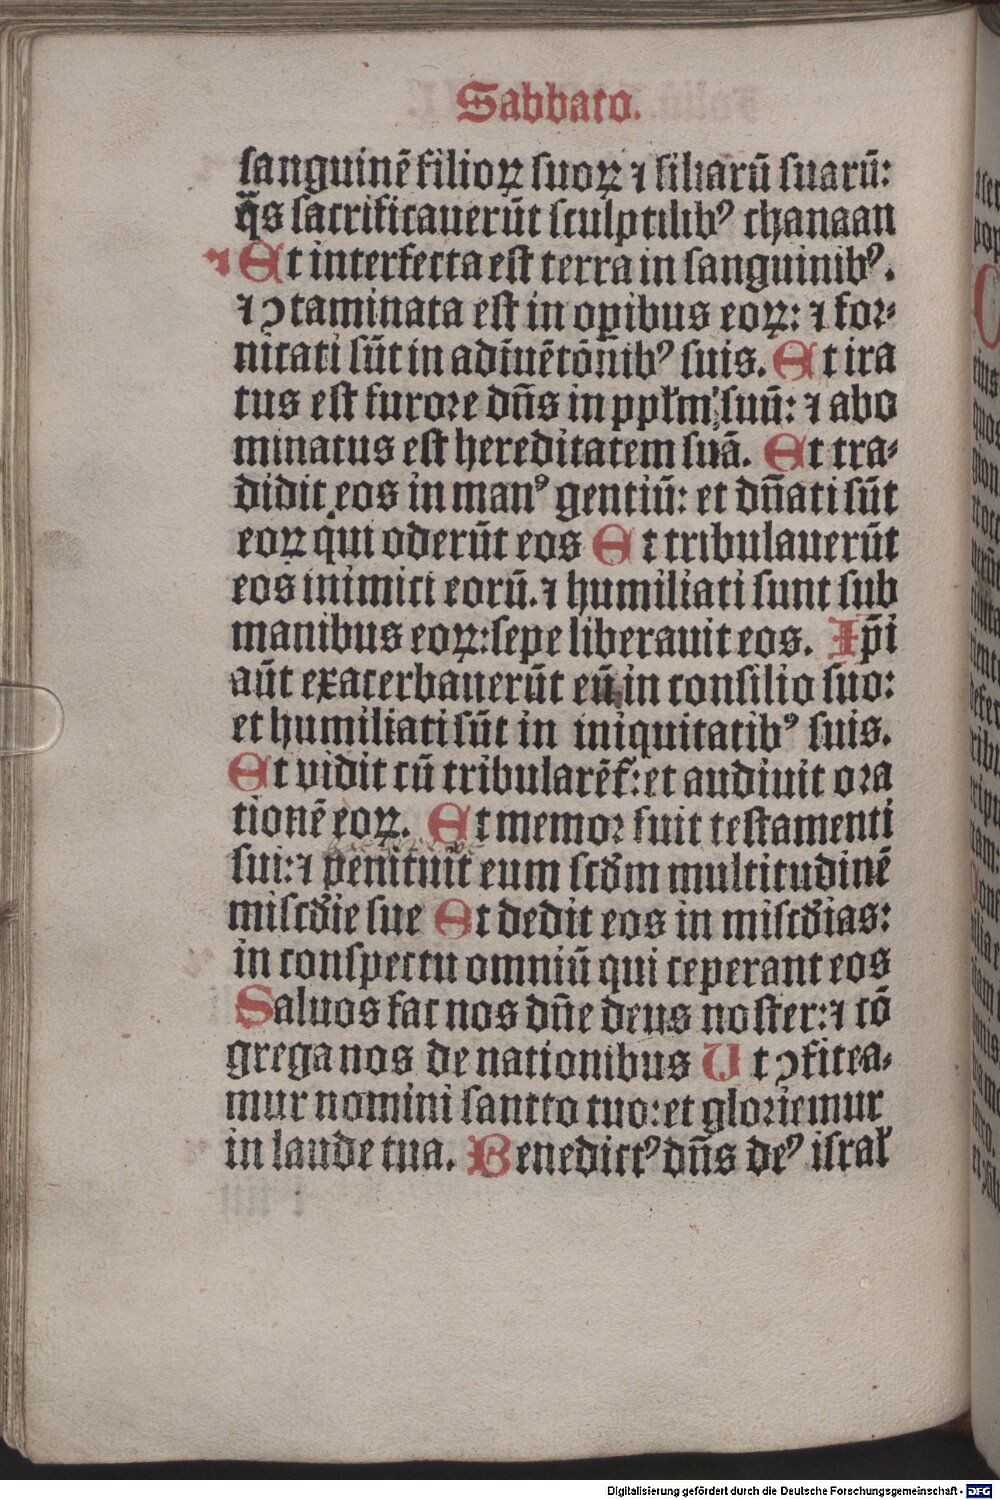 Sabbato.
sanguinē filioꝝ suoꝝ ⁊ filiarū suarū:
q̄s sacrificauerūt sculptilibꝰ chanaan
⁊ Et interfecta est terra in sanguinibꝰ.
⁊ ꝯtaminata est in oꝑibus eoꝝ: ⁊ for⸗
nicati sūt in adīuētōn̄ibꝰ suis. Et ira
tus est furore dn̄s in ppl̄m suū: ⁊ abo
minatus est hereditatem suā. Et tra⸗
didit eos in manꝰ gentiū: et dn̄ati sūt
eoꝝ qui oderūt eos Et tribulauerūt
eos inimici eorū. ⁊ humiliati sunt sub
manibus eoꝝ: sepe liberauit eos. Ip̄i
aūt exacerbauerūt eū in consilio suo:
et humiliati sūt in iniquitatibꝰ suis.
Et vidit cū tribularēt̄: et audiuit ora
tionē eoꝝ. Et memor fuit testamenti
sui: ⁊ penituit eum scd̄m multitudinē
miscd̄ie sue Et dedit eos in miscd̄ias:
in conspectu omniū qui ceperant eos
Saluos fac nos dn̄e deus noster: ⁊ cō
grega nos de nationibus Ut ꝯfitea⸗
mur nomini sancto tuo: et gloriemur
in laude tua. Benedictꝰ dn̄s deꝰ isral̄
Digitalisierung gefördert durch die Deutsche Forschungsgemeinschaft - DFG